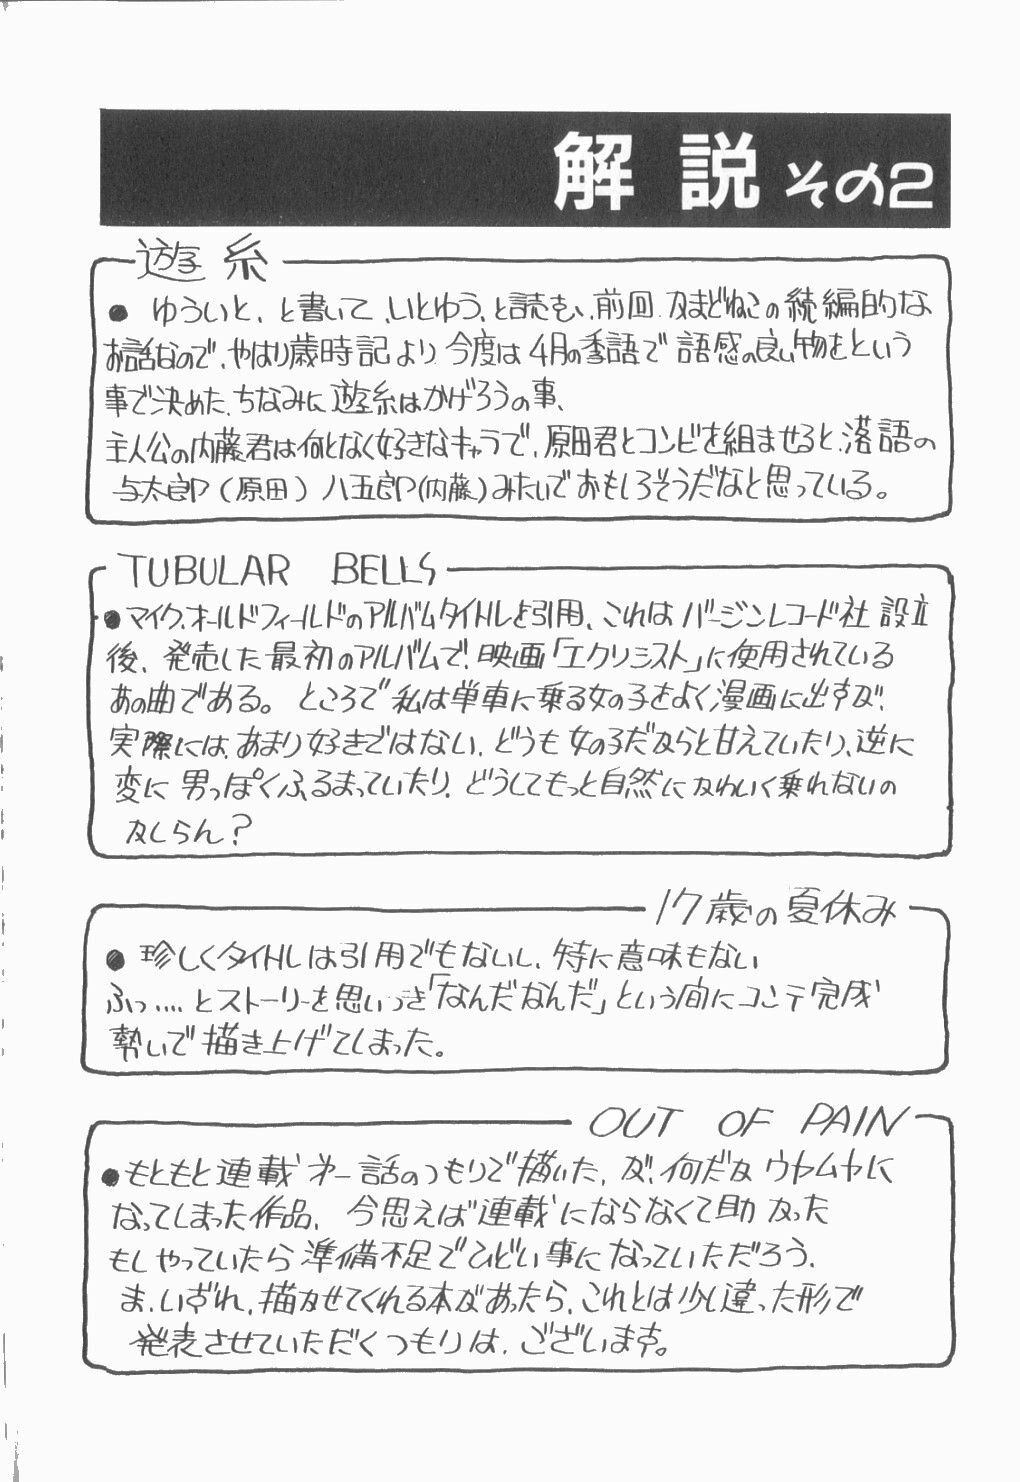 解説 その2
遊糸
● ゆういと、と書いて、いとゆう、と読む、前回、かまどねこの続編的な
お話なので、やはり歳時記より今度は4月の季語で語感の良い物をという
事で決めた、ちなみに遊糸はかげろうの事、
主人公の内藤君は何となく好きなキャラで、原田君とコンビを組ませると、落語の
与太郎(原田)八五郎(内藤)みたいでおもしろそうだなと思っている。
TUBULAR BELLS
●マイク.オールドフィールドのアルバムタイトルを引用、これはバージンレコード社設立
後、発売した最初のアルバムで、映画「エクソシスト」に使用されている
あの曲である。ところで私は単車に乗る女の子をよく漫画に出すが、
実際には、あまり好きではない、どうも女の子だからと甘えていたり、逆に
変に男っぽくふるまっていたり、どうしてもっと自然にかわいく乗れないの
かしらん?
17歳の夏休み
● 珍しくタイトルは引用でもないし、特に意味もない
ふっ....とストーリーを思いつき「なんだなんだ」という間にコンテ完成
勢いで描き上げてしまった。
OUT OF PAIN
●もともと連載才一話のつもりで描いた、が、何だかウヤムヤに
なってしまった作品、今思えば連載にならなくて助かった
もしやっていたら準備不足でひどい事になっていただろう、
ま、いずれ、描かせてくれる本があったら、これとは少し違った形で
発表させていただくつもりは、ございます。